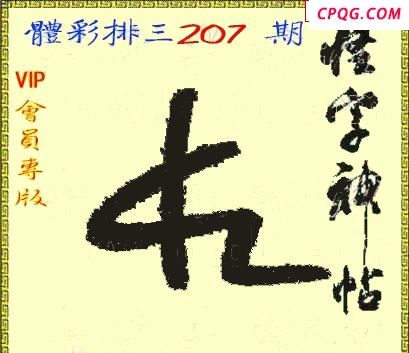 CPQG.COM
體彩排三207 期
VIP
會員專版
怪字神帖